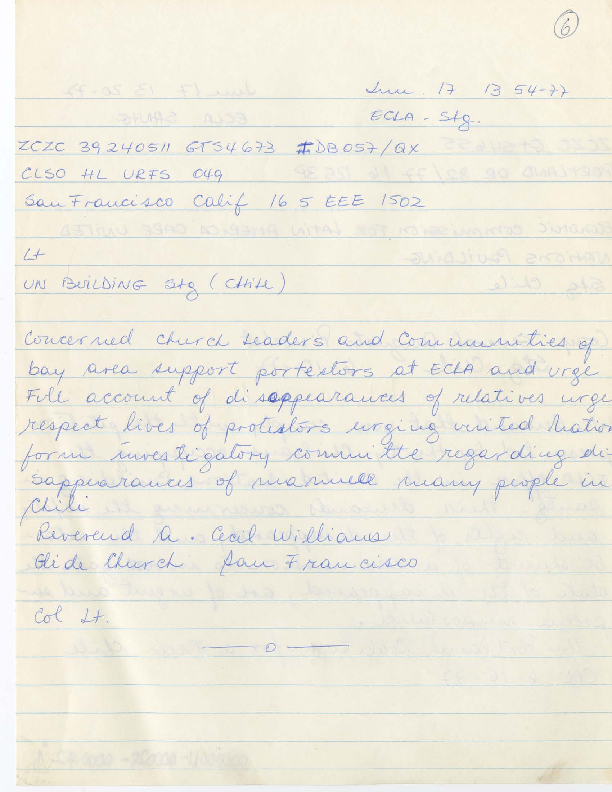 6
Jun. 17 13 54-77
ECLA - Stg.
ZCZC 39240511 GTS4673 #DB057/QX
CLSO HL URFS 049
San Francisco Calif 16 5 EEE 1502
Lt
UN BUILDING Stg (CHILE)
Concerned church Leaders and Communities of
bay area support portestors at ECLA and urge
Full account of disappearances of relatives urge
respect lives of protestors urging united Nation
form investigatory committe regarding di-
sappearances of many people in
Chili
Reverend A. Cecil Williams
Glide Church San Francisco
Col Lt.